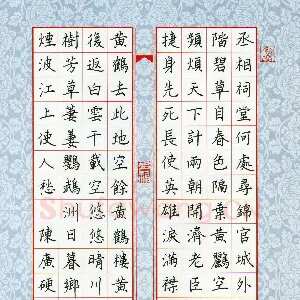 丞相祠堂何處尋錦官城外
階碧草自春色隔葉黃鸝空
頻煩天下計兩朝開濟老臣
捷身先死長使英雄淚滿襟
黃鶴去此地空餘黃鶴樓黃
後返白雲千載空悠悠晴川
樹芳草萋萋鸚鵡洲日暮鄉
煙波江上使人愁陳廣硬